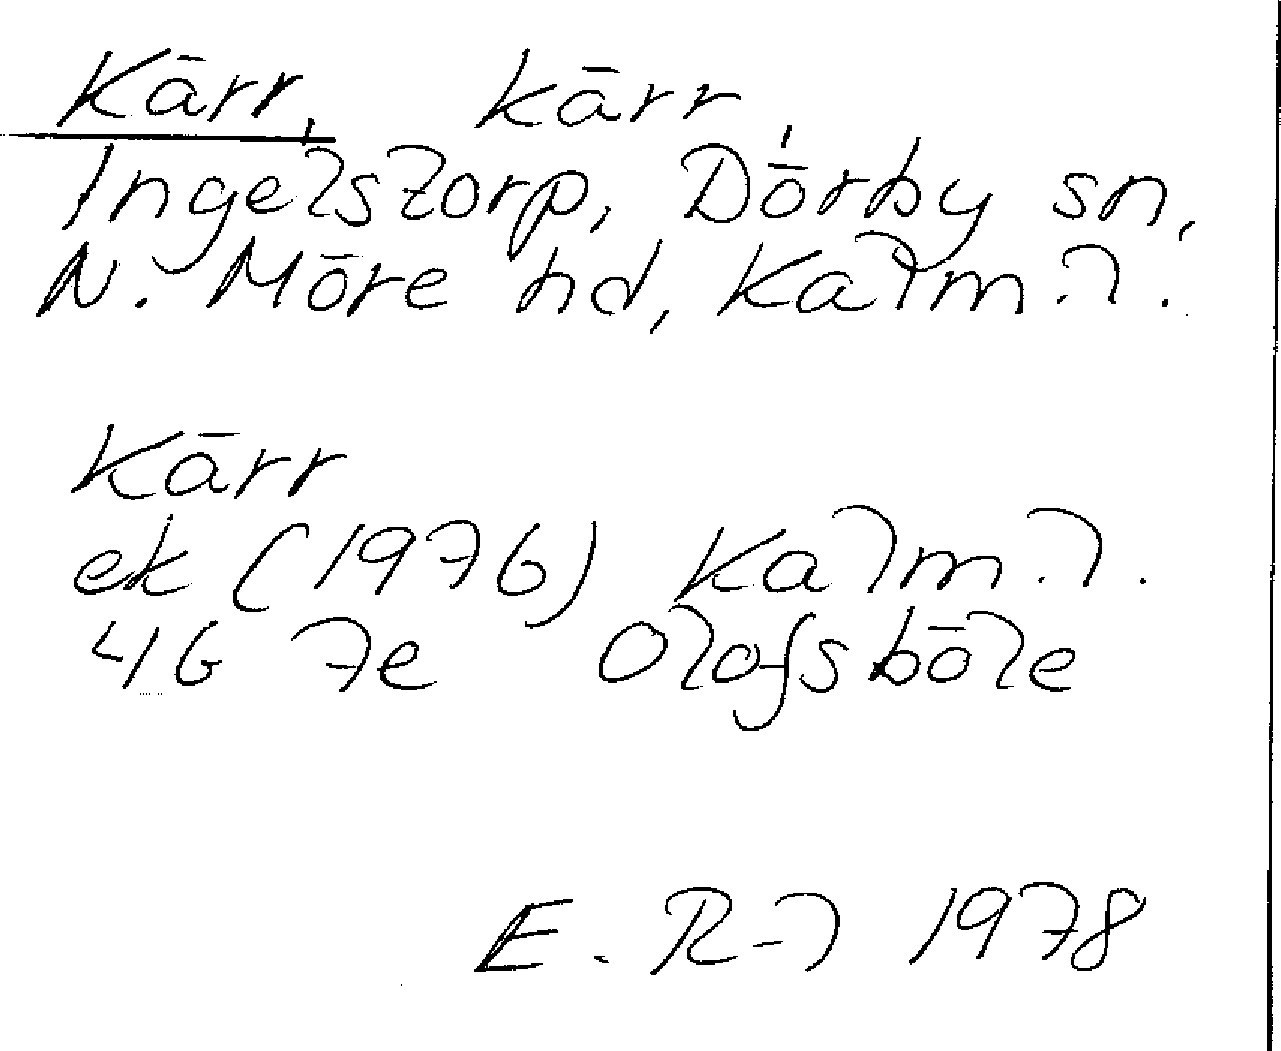 Kārr, kārr,
Ingelstorp, Dōrby sn,
N. Mōre hd, Kalm. l.
Kārr
ek (1976) Kalm. l.
4G 7e Olofsbōle
E. R-l 1978